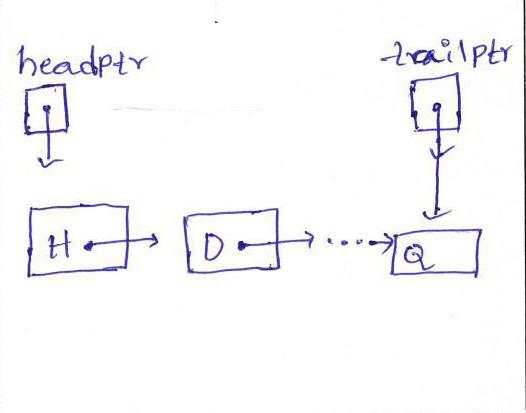 headptr trailptr
H D Q